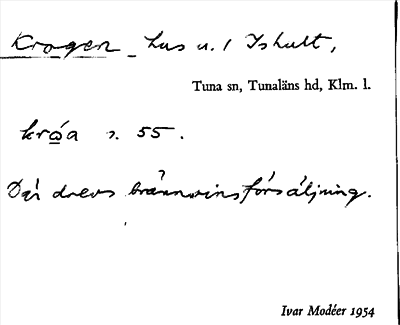 Krogen, hus u. / Ishult,
Tuna sn, Tunaläns hd, Klm. l.
kröa s. 55.
Där drevs brännvinsförsäljning.
Ivar Modéer 1954